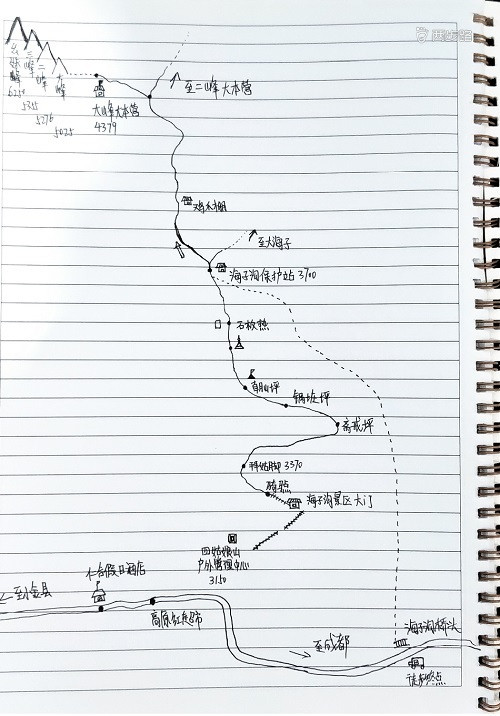 幺妹峰
6250
三峰
5355
二峰
5276
大峰
5025
大峰大本营
4379
至二峰大本营
至大海子
海子沟保护站 3700
石板热
朝山坪
锅庄坪
斋戒坪
3370
海子沟景区大门
四姑娘山
户外管理中心
3150
仁合假日酒店
至小金县
高原红超市
至成都
海子沟桥头
徒步终点